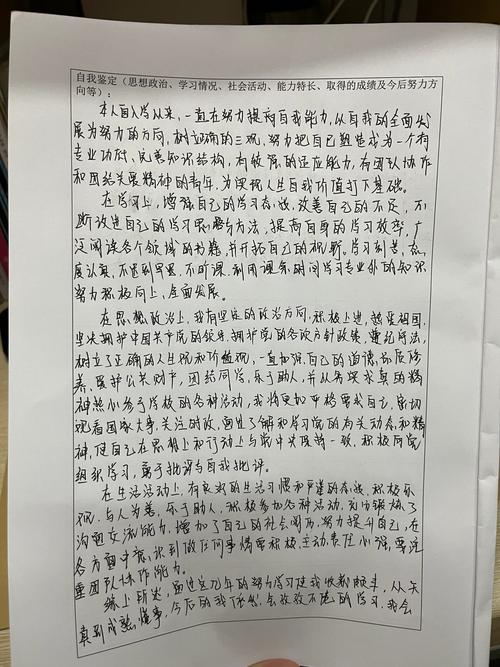 自我鉴定（思想政治、学习情况、社会活动、能力特长、取得的成绩及今后努力方
向等）：
本人自入学以来，一直在努力提高自我能力，从自我的全面发
展为努力的方向，树立正确的三观，努力把自己塑造成为一个有
专业功底、完善知识结构，有较强的适应能力，有团队协作
和团结友爱精神的青年，为实现人生自我价值打下基础。
在学习上，增强自己的学习态度，改善自己的不足，不
断改进自己的学习思路与方法，提高自身的学习效率，广
泛阅读各个领域的书籍，并开拓自己的视野。学习刻苦，态
度认真，不迟到早退、不旷课、利用课余时间学习专业外的知识
努力积极向上，全面发展。
在思想政治上，我有坚定的政治方向，积极上进，热爱祖国，
坚决拥护中国共产党的领导，拥护党的各项方针政策，遵纪守法，
树立了正确的人生观和价值观，一直加强自己的道德素质修
养，爱护公共财产，团结同学，乐于助人，并以务实求真的精
神热心参与学校的各种活动，我将更加严格要求自己，密切
观看国家大事，关注时政，通过了解和学习党的有关动态和精
神，使自己在思想上和行动上与党中央保持一致，积极向党
组织学习，勇于批评与自我批评。
在生活活动上，有良好的生活习惯和严谨的态度，积极乐
观，与人为善，乐于助人，积极参加各种活动，充分锻炼了
沟通交流能力，增加了自己的社会阅历，努力提升自己，在
各方面中意识到做任何事情要积极、主动、责任心强，要注
重团队协作能力。
综上所述，通过这几年的努力学习使我收获颇丰，从天
真到成熟、懂事，今后的我依然会孜孜不倦的学习，我会